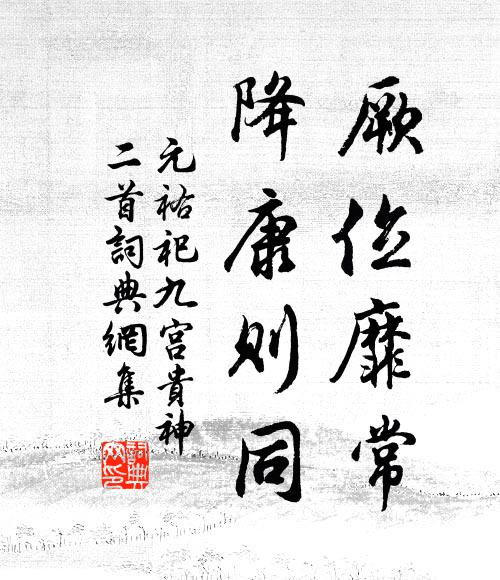 厥位靡常
降康則同
元祐祀九宮貴神
二首詞典網集